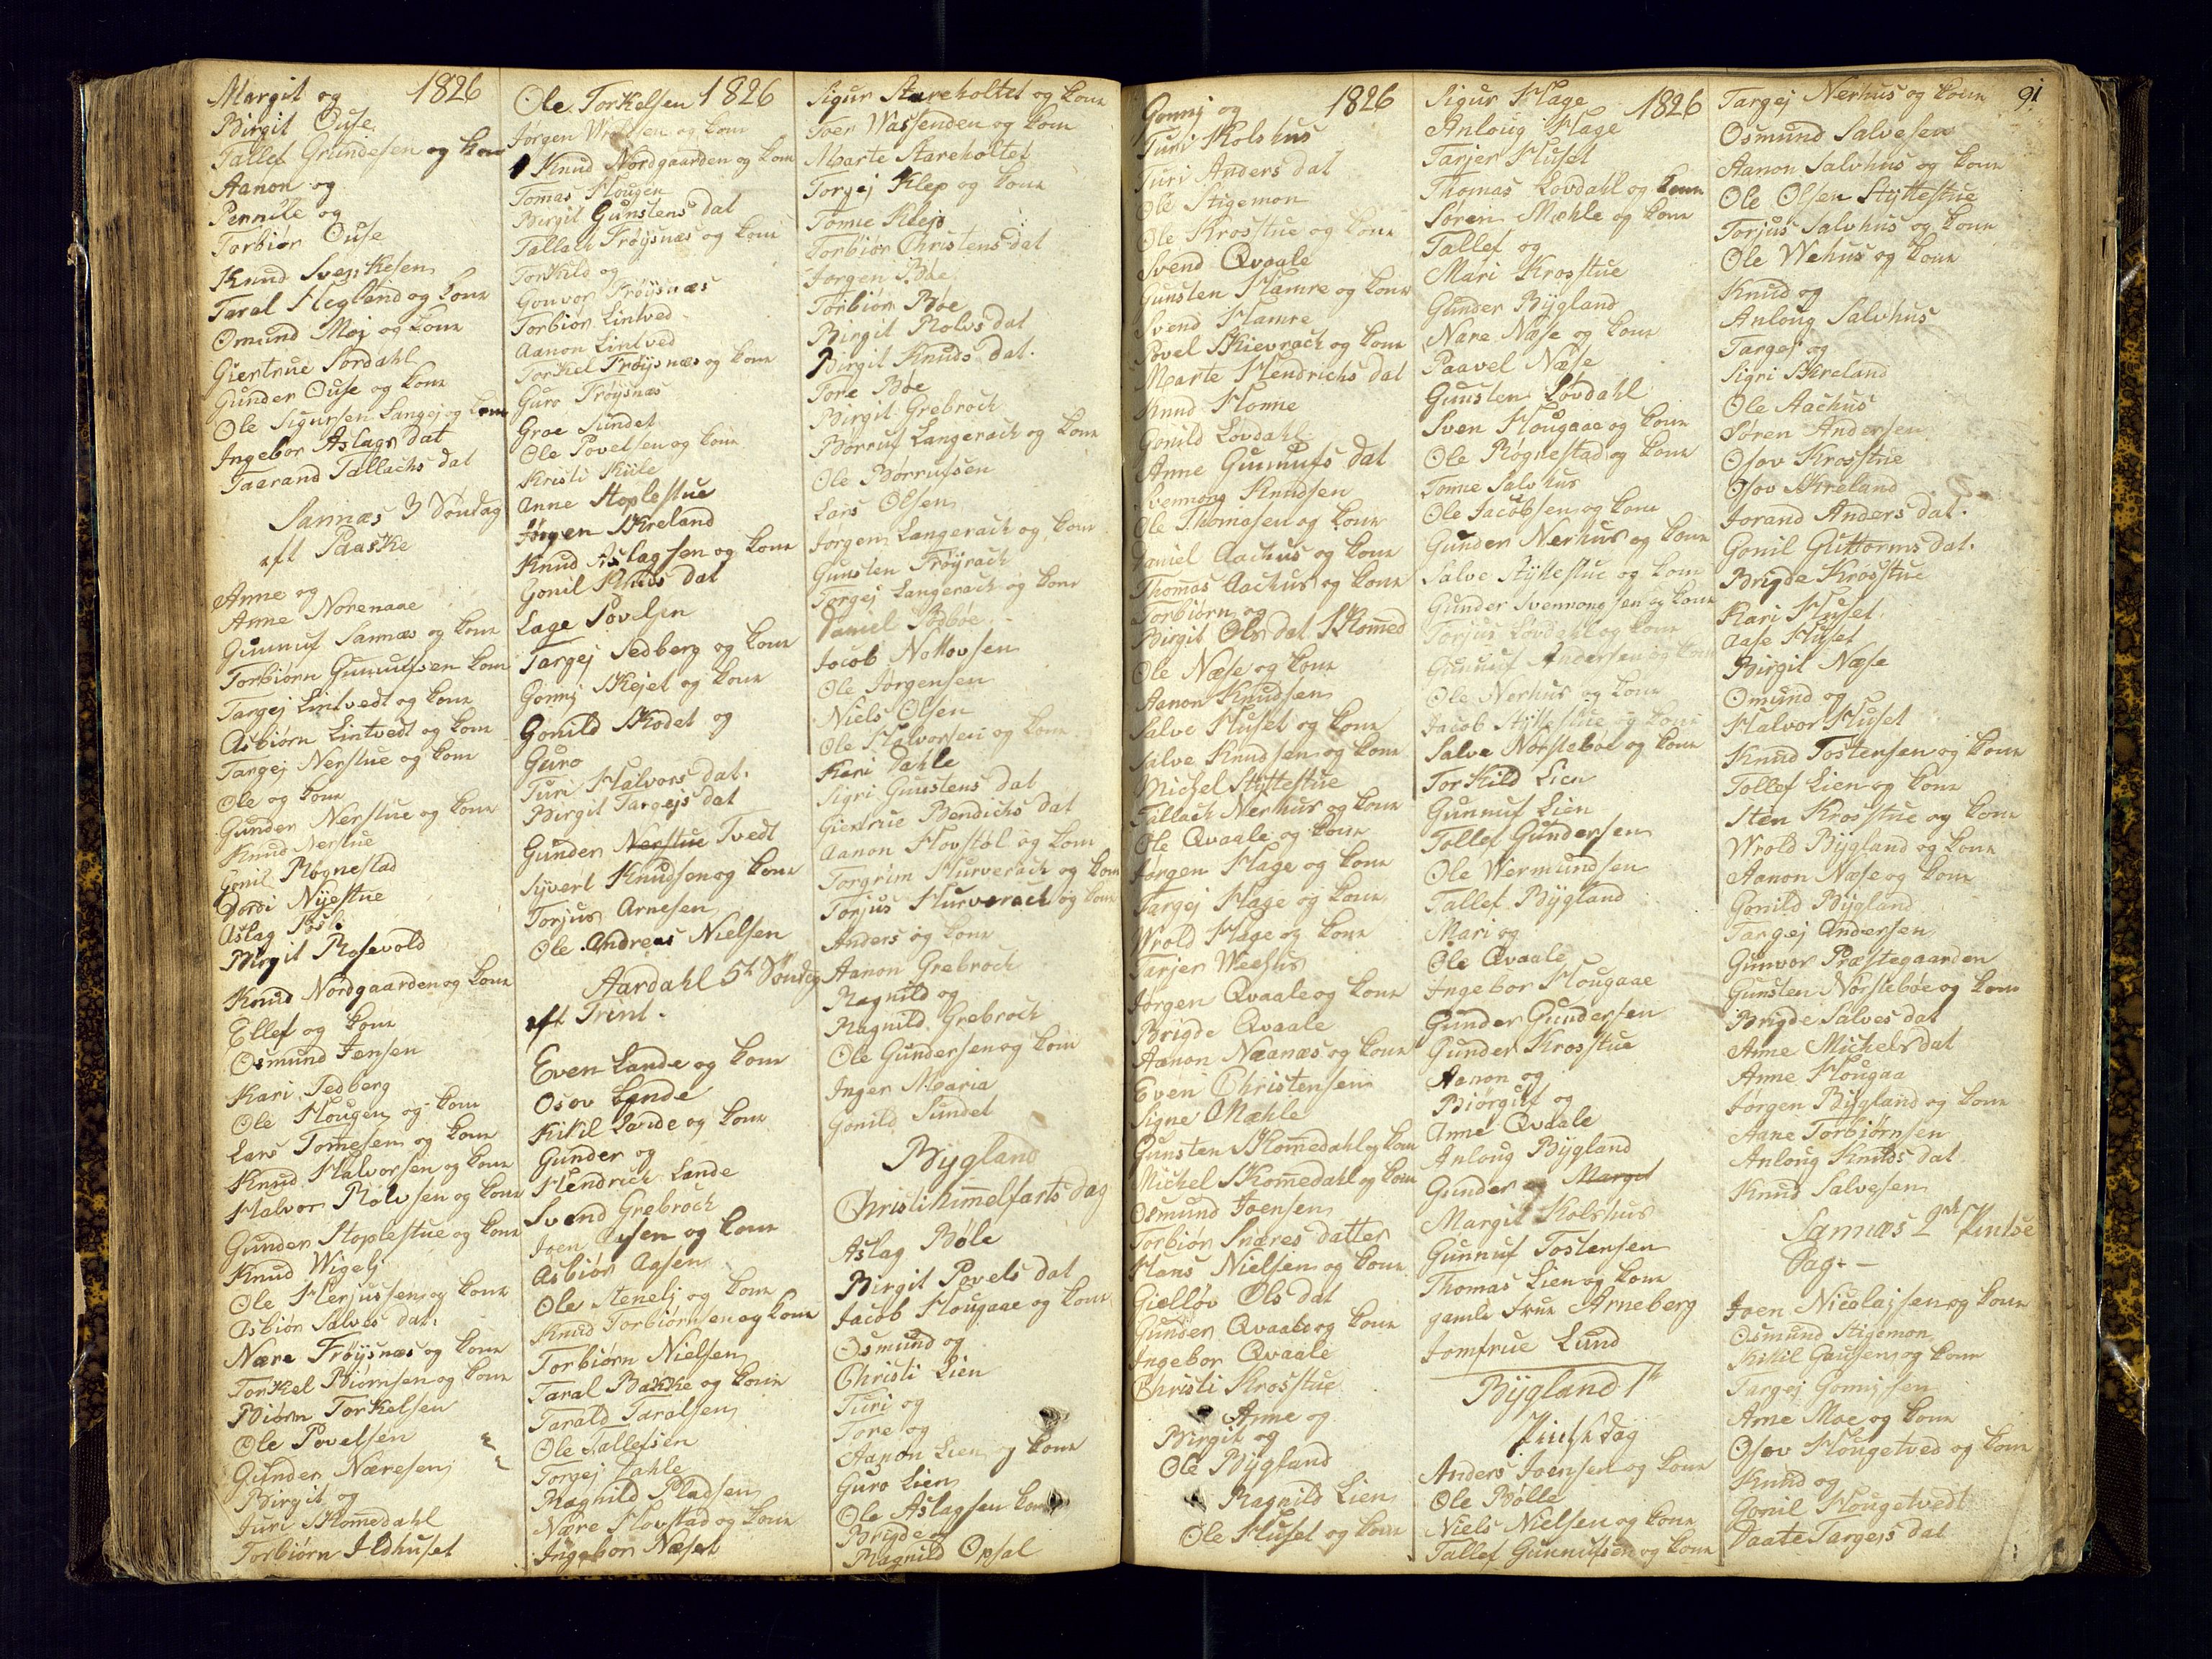 1826
Margit og
Birgit Ouse
Tallef Grundesen og kone
Aanon og
Pernile og
Torbiør Ouse
Knud Svenkesen
Taral Hegland og kone
Omund Moj og kone
Giertrue Sordahl
Gunder Ouse og kone
Ole Sigursen Langej og kone
Ingebor Aslags dat
Taarand Tallachs dat
Sannæs 3 Søndag
eft Paaske
Anne og
Anne Norenaae
Gunnuf Sannæs og kone
Torbiørn Gunnufsen kone
Targej Lintvedt og kone
Asbiørn Lintvedt og kone
Targej Nerstue og kone
Ole og kone
Gunder Nerstue og kone
Knud Nerstue
Gonil Røgnestad
Dordi Nÿestue
Aslag
Birgit Rosevold
Knud Nordgaarden og kone
Ellef og kone
Osmund Jensen
Kari Sedberg
Ole Hougen og kone
Lars Tomesen og kone
Knud Halvorsen og kone
Halvor Rolvsen og kone
Gunder Stoplestue og kone
Knud Wigelj
Ole Herjussen og kone
Asbiør Salves dat.
Nære Frøÿsnæs og kone
Torkel Biørnsen og kone
Biørn Torkelsen
Ole Povelsen
Gunder Næresen
Birgit og
Juri Skomedahl
Torbiørn Ildhuset
Ole Torkelsen 1826
Jørgen Wroldsen og kone
Knud Nordgaarden og kone
Tomas Hougen
Birgit Gunstens dat
Tallach Frøÿsnæs og kone
Torkild og
Gonvor Frøÿsnæs
Torbiør Lintved
Aanon Lintved
Torkel Frøÿsnæs og kone
Guro Frøÿsnæs
Groe Sundet
Ole Povelsen og kone
Kristi Kiile
Anne Stoplestue
Jørgen Skreland
Knud Aslagsen og kone
Gonil Knuds dat
Lage Povelsen
Targej Sedberg og kone
Gonnj Skejet og kone
Gonild Skodet og
Guro
Turi Halvors dat.
Birgit Targejs dat
Gunder Nerstue Tvedt
Syvert Knudsen og kone
Torjus Arnesen
Ole Andreas Nielsen
Aardahl 5te Søndag
eft Trint.
Even Lande og kone
Osov Lande
Kitil Lande og kone
Gunder og
Hendrich Lande
Svend Grebroch
Joen Aasen og kone
Asbiør Aasen
Ole Stenelj og kone
Knud Torbiørnsen og kone
Torbiørn Nielsen
Taral Bakke og kone
Tarald Taralsen
Ole Tallefsen
Torgej Dahle
Ragnild Pladsen
Nære Hovstad og kone
Ingebor Næset
Sigur Stareholtet og kone
Toer Wassenden og kone
Marte Stareholtet
Torgej Klep og kone
Tonne Klep
Torbiør Christens dat
Jørgen Bøe
Torbiør Bøe
Birgit Rolvs dat
Birgit Knuds dat.
Tore Bøe
Birgit Grebroch
Børruf Langerach og kone
Ole Børrufsen
Lars Olsen
Jørgen Langerach og kone
Gunsten Frøÿrach
Torgej Langerach og kone
Daniel
Jacob Nottovsen
Ole Jørgensen
Niels Olsen
Ole Halvorsen og kone
Kari Dahle
Sigri Gunstens dat
Giertrue Bendichs dat
Aanon Hovstøl og kone
Torgrim Hurverach og kone
Torjus Hurverach og kone
Anders og kone
Aanon Grebroch
Ragnild og
Ragnild Grebroch
Ole Gundersen og kone
Inger Maria
Gonild Sundet
Bÿgland
Christi himmelfarts dag
Aslag Bøle
Birgit Povels dat
Jacob Hougaae og kone
Osmund og
Christi Lien
Turi og
Tore og
Aanon Lien og kone
Guro Lien
Ole Aslagsen kone
Brigde og
Ragnild Opsal
1826
Gonnj og
Turi Kolshus
Turi Anders dat
Ole Stigemon
Ole Krosstue og kone
Svend Qvaale
Gunsten Hamre og kone
Svend Hamre
Povel Skievrach og kone
Marte Hendrichs dat
Knud Homne
Gonild Løvdahl
Anne Gunnufs dat
Svennong Knudsen
Ole Thomasen og kone
Daniel Aachus og kone
Thomas Aachus og kone
Torbiørn og
Birgit Ols dat Skomed
Ole Næse og kone
Aanon Knudsen
Salve Huset og kone
Salve Knudsen og kone
Michel Stÿttestue
Tallach Nerhus og kone
Ole Qvaale og kone
Jørgen Hage og kone
Targej Hage og kone
Wrold Hage og kone
Tarjer Weehus
Jørgen Qvaale og kone
Brigde Qvaale
Aanon Naanæs og kone
Even Christensen
Signe Mæhle
Gunsten Skomedahl og kone
Michel Skomedahl og kone
Osmund Joensen
Torbiør Snæres datter
Hans Nielsen og kone
Gielløv Ols dat
Gunder Qvaale og kone
Ingebor Qvaale
Christi Krosstue
Anne og
Birgit og
Ole Bÿgland
Ragnild Lien
Ole Huset og kone
Sigur Hage 1826
Anloug Hage
Tarjer Huset
Thomas Lovdahl og kone
Søren Mæhle og kone
Tallef og
Mari Krosstue
Gunder Bÿgland
Nare Næse og kone
Paavel Næse
Gunsten Løvdahl
Sven Hougaae og kone
Ole Røgnestad og kone
Tonne Salvhus
Ole Jacobsen og kone
Gunder Nerhus og kone
Salve Stÿttestue og kone
Gunder Svennongsen og kone
Torjus Løvdahl og kone
Gunnuf Andersen og kone
Ole Nerhus og kone
Jacob Stÿttestue og kone
Salve Nørstebøe og kone
Torkild Lien
Gunnuf Lien
Tollef Gundersen
Ole Wermundsen
Tallef Bÿgland
Mari og
Ole Qvaale
Ingebor Hougaae
Gunder Gundersen
Gunder Krosstue
Aanon og
Biørgulf og
Anne Qvaale
Anloug Bÿgland
Gunder og Margit
Margit Kolshus
Gunnuf Tostensen
Thomas Lien og kone
gamle Frue Arneberg
Jomfrue Lund
Bÿgland 1te
Pintsdag
Anders Joensen og kone
Ole Bølle
Niels Nielsen og kone
Tallef Gunnufsen og kone
91
Targej Nerhus og kone
Osmund Salvesen
Aanon Salvhus og kone
Ole Olsen Stÿttestue
Torjus Salvhus og kone
Ole Wehus og kone
Knud og
Anloug Salvhus
Targej og
Sigri Skreland
Ole Aachus
Søren Andersen
Osov Krosstue
Osov Skreland
Jorand Anders dat.
Gonil Guttorms dat.
Brigde Krosstue
Kari Huset
Aase Huset
Birgit Næse
Omund og
Halvor Huset
Knud Tostensen og kone
Tollef Lien og kone
Sten Krosstue og kone
Wrold Bÿgland og kone
Aanon Næse og kone
Gonild Bÿgland
Targej Andersen
Gunvor Præstegaarden
Gunsten Nørstebøe og kone
Brigde Salves dat
Anne Michels dat
Anne Hougaa
Jørgen Bÿgland og kone
Aane Torbiørnsen
Anloug Knuds dat
Knud Salvesen
Sannæs 2den Pintse
Dag.-
Joen Nicolajsen og kone
Osmund Stigemon
Kitil Gausen og kone
Targej Gonnjsen
Arne Moe og kone
Osov Hougetved og kone
Knud og
Gonil Hougetvedt
Daate Targejs dat